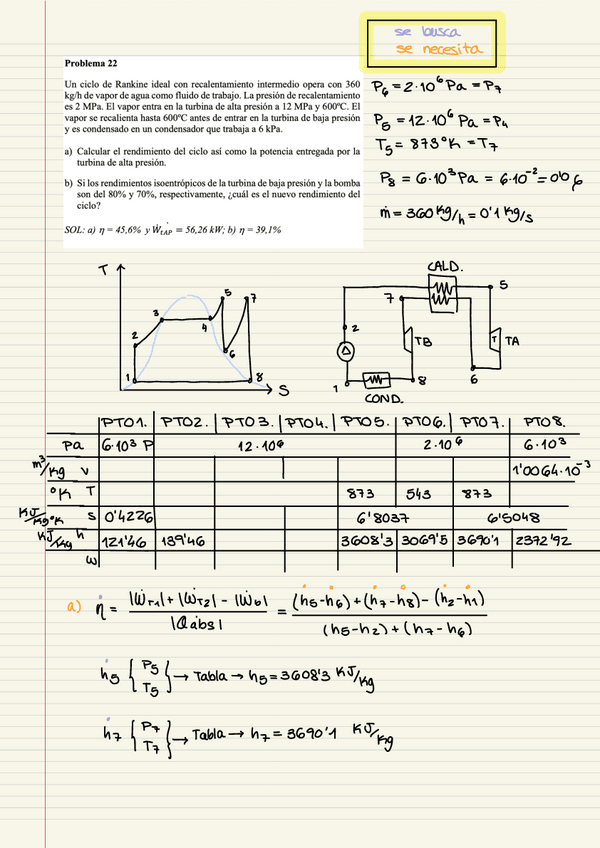 se busca
se necesita
Problema 22
Un ciclo de Rankine ideal con recalentamiento intermedio opera con 360
kg/h de vapor de agua como fluido de trabajo. La presión de recalentamiento
es 2 MPa. El vapor entra en la turbina de alta presión a 12 MPa y 600ºC. El
vapor se recalienta hasta 600ºC antes de entrar en la turbina de baja presión
y es condensado en un condensador que trabaja a 6 kPa.
a) Calcular el rendimiento del ciclo así como la potencia entregada por la
turbina de alta presión.
b) Si los rendimientos isoentrópicos de la turbina de baja presión y la bomba
son del 80% y 70%, respectivamente, ¿cuál es el nuevo rendimiento del
ciclo?
SOL: a) η = 45,6% y Ẇ_tAP = 56,26 kW; b) η = 39,1%
P6 = 2·10^6 Pa = P7
P5 = 12·10^6 Pa = P4
T5 = 873ºK = T7
P8 = 6·10^3 Pa = 6·10^-2 = 0'06
ṁ = 360 Kg/h = 0'1 Kg/s
T
1 2 3 4 5 6 7 8
S
CALD.
5
7
2
TB
T TA
1
8
6
COND.
PTO1. PTO2. PTO3. PTO4. PTO5. PTO6. PTO7. PTO8.
Pa 6·10^3 P 12·10^6 2·10^6 6·10^3
m^3/kg v 1'0064·10^-3
ºK T 873 543 873
KJ/KgºK s 0'4226 6'8037 6'5048
KJ/Kg h 121'46 139'46 3608'3 3069'5 3690'1 2372'92
w
a) η = (|ẆT1| + |ẆT2| - |Ẇb|) / |Q̇abs| = ((h5-h6)+(h7-h8)-(h2-h1)) / ((h5-h2)+(h7-h6))
h5 { P5 T5 } → Tabla → h5 = 3608'3 KJ/Kg
h7 { P7 T7 } → Tabla → h7 = 3690'1 KJ/Kg